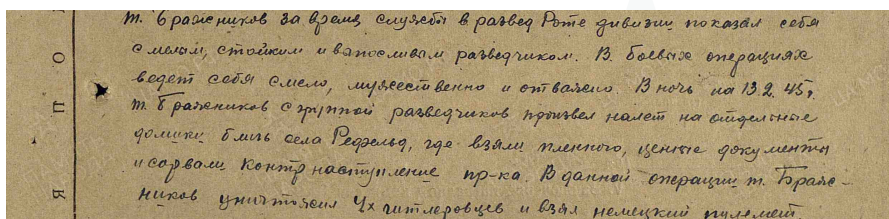 т. Бражников за время службы в развед роте дивизии показал себя
смелым, стойким и выносливым разведчиком. В боевых операциях
ведет себя смело, мужественно и отважно. В ночь на 13.2.45г.
т. Бражников с группой разведчиков произвел налет на отдельные
домики близь села Рефельд, где взяли пленного, ценные документы
и сорвали контрнаступление пр-ка. В данной операции т. Браж-
ников уничтожил 4х гитлеровцев и взял немецкий пулемет.